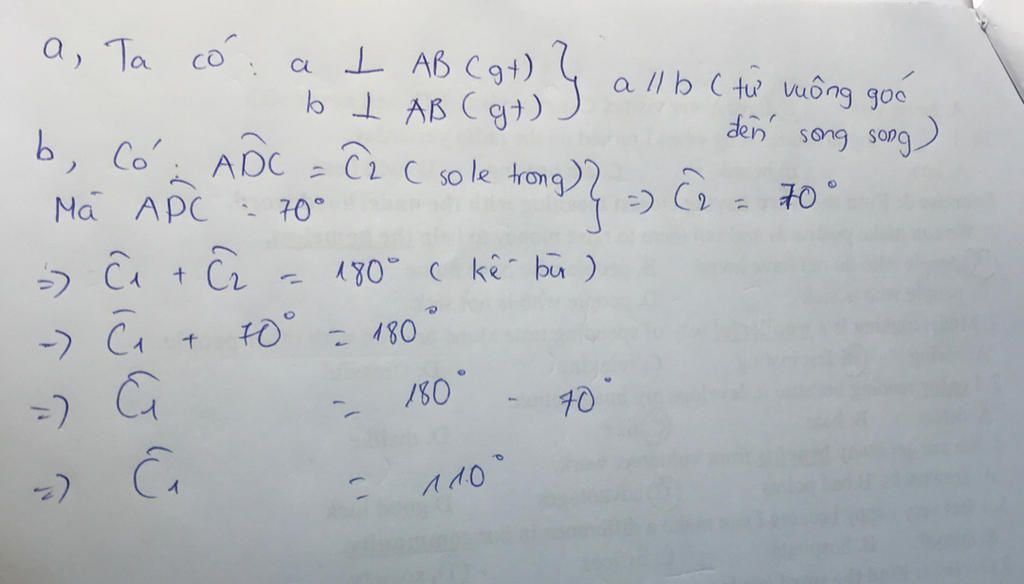 a, Ta có: a ⊥ AB (gt) } a // b ( từ vuông góc
b ⊥ AB (gt) } đến song song)
b, Có: ADC = C2 ( so le trong) } => C2 = 70°
Mà ADC = 70°
=> C1 + C2 = 180° ( kề bù )
=> C1 + 70° = 180°
=> C1 = 180° - 70°
=> C1 = 110°